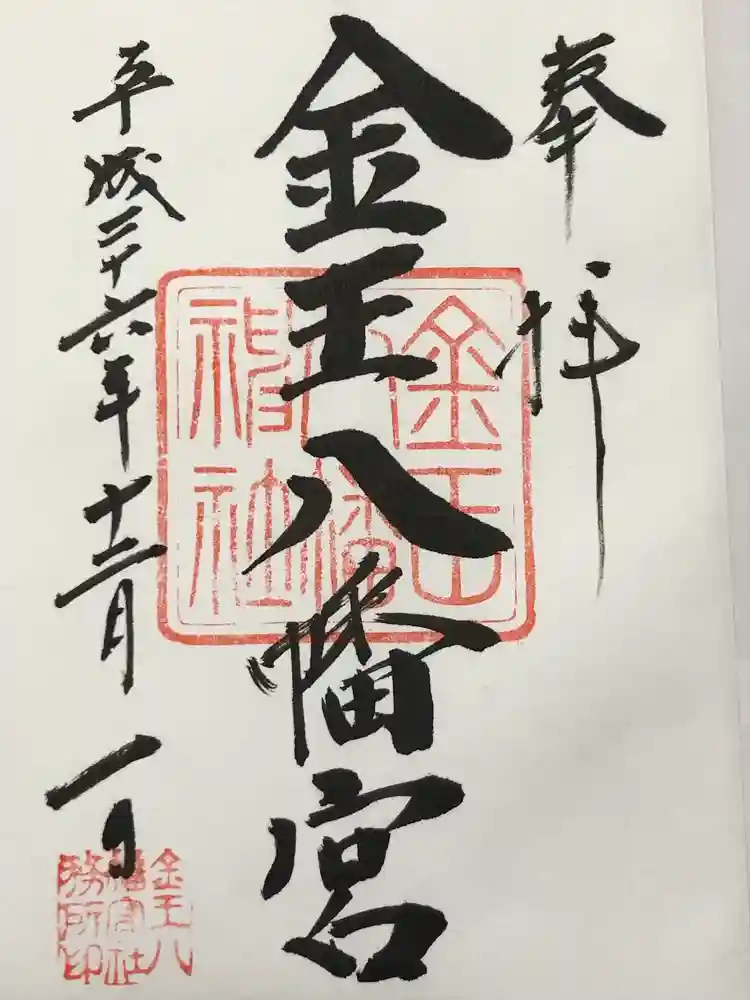 奉拝
金王八幡宮
平成二十六年十二月一日
金王
八幡
神社
金王八
幡宮社
務所印